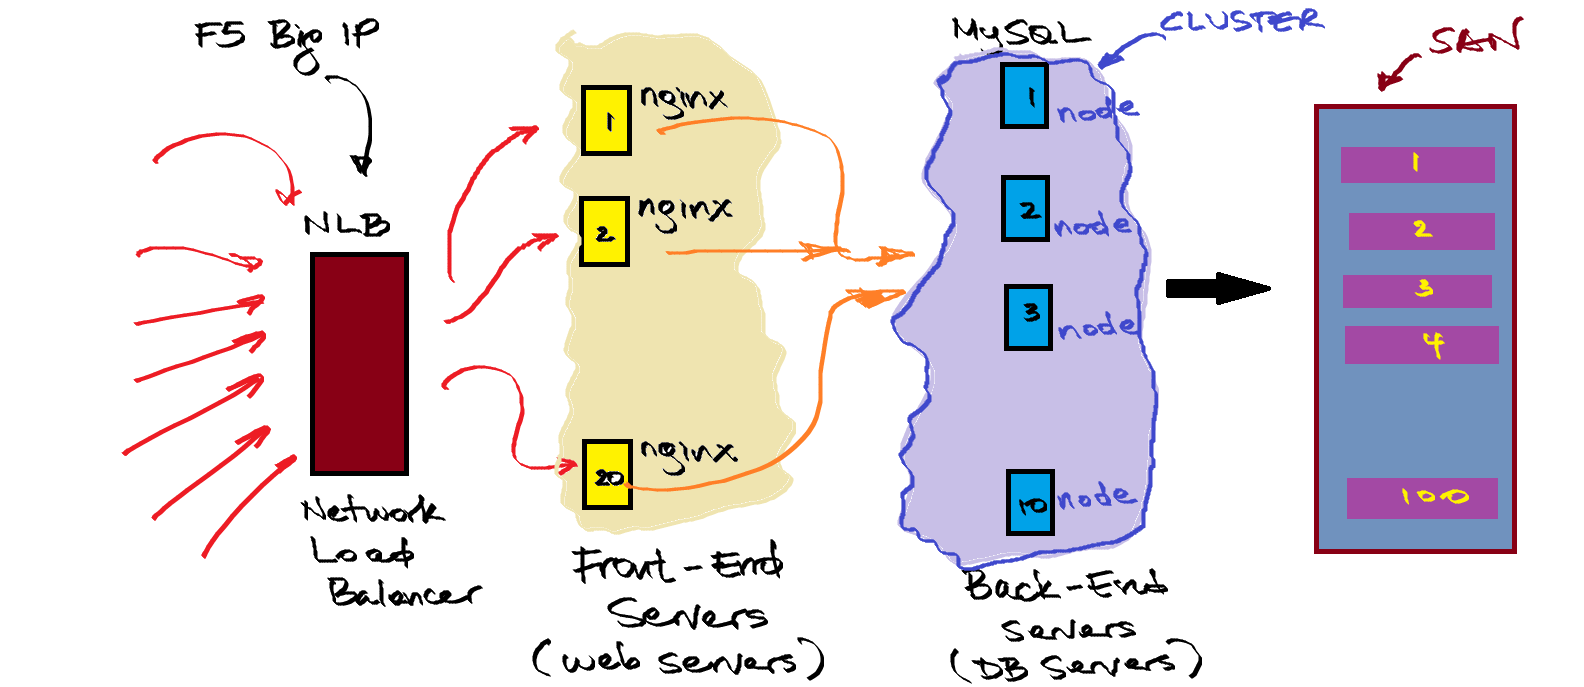 F5 Big IP
NLB
Network
Load
Balancer
1 nginx
2 nginx
20 nginx
Front-End
Servers
(web servers)
MySQL
CLUSTER
1 node
2 node
3 node
10 node
Back-End
servers
(DB servers)
SAN
1
2
3
4
100